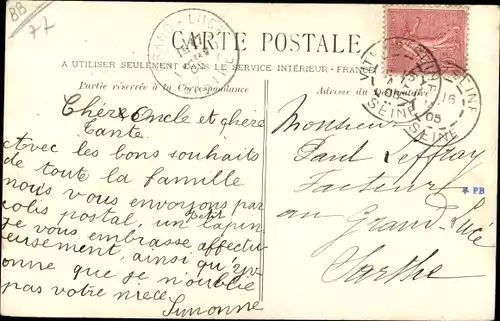 88
77
CARTE POSTALE
A UTILISER SEULEMENT DANS LE SERVICE INTÉRIEUR - FRANCE
Partie réservée à la Correspondance
Adresse du Destinataire
Chère Oncle et chère
Tante.
Avec les bons souhaits
de toute la famille
nous vous envoyons par
colis postal, un petit lapin
Je vous embrasse affectu-
eusement, ainsi qu'
onne que je n'oublie
pas votre niece
Simonne
Monsieur
Paul Leffray
Facteur
au Grand-Lucé
Sarthe
* PB
SEINE
16
05
SEINE